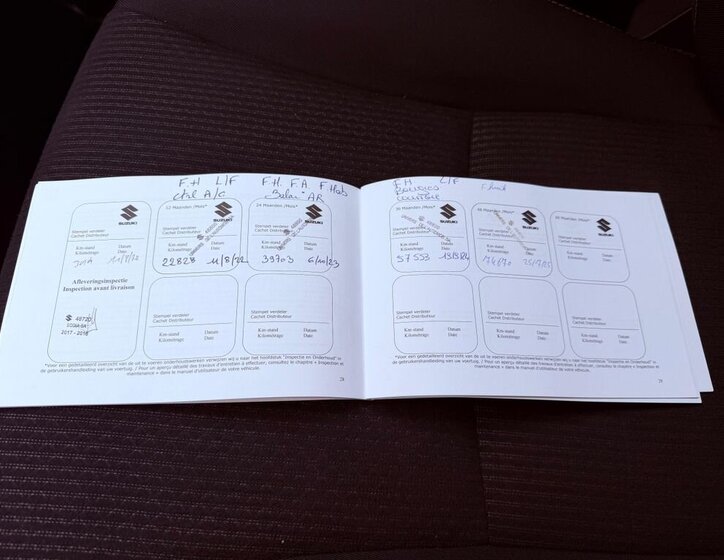 F.H L/F
Ctrl A/C
F.H. F.A. F Hab
Balai AR
F.H. L/F
SUZUKI
Stempel verdeler
Cachet Distributeur
Km-stand Datum
Kilométrage Date
Afleveringsinspectie
Inspection avant livraison
12 Maanden /Mois*
SUZUKI
Stempel verdeler
Cachet Distributeur
Km-stand Datum
Kilométrage Date
22828 11/8/22
24 Maanden /Mois*
SUZUKI
Stempel verdeler
Cachet Distributeur
Km-stand Datum
Kilométrage Date
39703 6/10/23
36 Maanden /Mois*
SUZUKI
Stempel verdeler
Cachet Distributeur
Km-stand Datum
Kilométrage Date
57553
48 Maanden /Mois*
SUZUKI
Stempel verdeler
Cachet Distributeur
Km-stand Datum
Kilométrage Date
60 Maanden /Mois*
SUZUKI
Stempel verdeler
Cachet Distributeur
Km-stand Datum
Kilométrage Date
2017 - 2018
Stempel verdeler
Cachet Distributeur
Km-stand Datum
Kilométrage Date
Stempel verdeler
Cachet Distributeur
Km-stand Datum
Kilométrage Date
Stempel verdeler
Cachet Distributeur
Km-stand Datum
Kilométrage Date
Stempel verdeler
Cachet Distributeur
Km-stand Datum
Kilométrage Date
Stempel verdeler
Cachet Distributeur
Km-stand Datum
Kilométrage Date
*Voor een gedetailleerd overzicht van de uit te voeren onderhoudswerken verwijzen wij u naar het hoofdstuk "Inspectie en Onderhoud" in
de gebruikershandleiding van uw voertuig. / Pour un aperçu détaillé des travaux d'entretien à effectuer, consultez le chapitre « Inspection et
maintenance » dans le manuel d'utilisateur de votre véhicule.
28
*Voor een gedetailleerd overzicht van de uit te voeren onderhoudswerken verwijzen wij u naar het hoofdstuk "Inspectie en Onderhoud" in
de gebruikershandleiding van uw voertuig. / Pour un aperçu détaillé des travaux d'entretien à effectuer, consultez le chapitre « Inspection et
maintenance » dans le manuel d'utilisateur de votre véhicule.
29